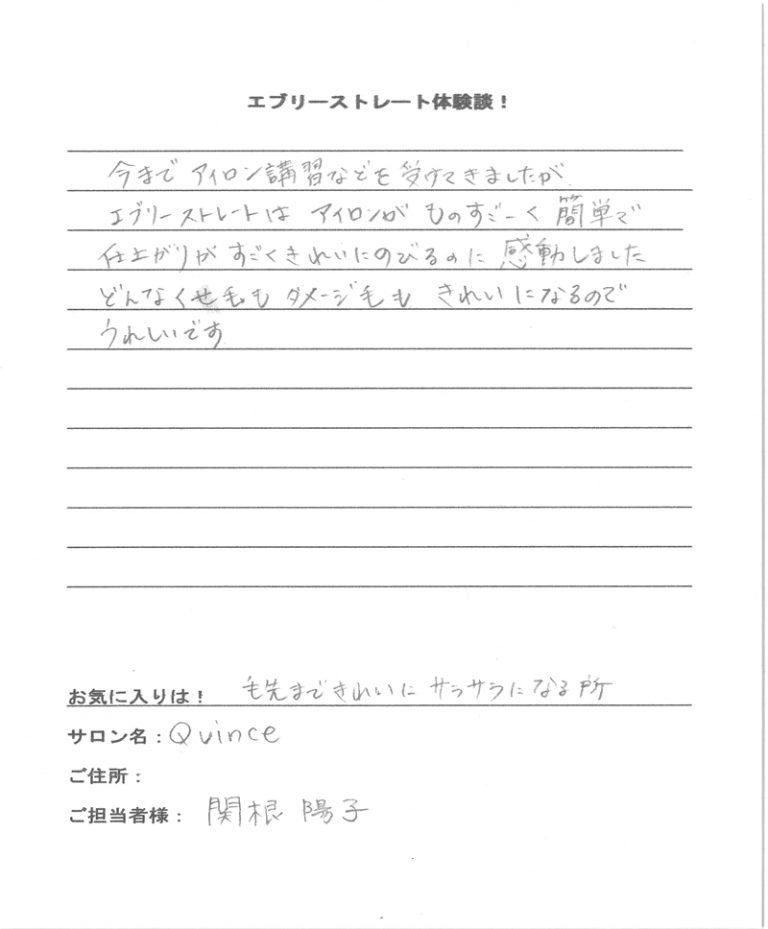 エブリーストレート体験談！
今まで アイロン講習などを 受けてきましたが
エブリーストレートは アイロンが ものすごーく 簡単で
仕上がりが すごくきれいにのびるのに 感動しました
どんなくせ毛も ダメージ毛も きれいになるので
うれしいです
お気に入りは！ 毛先まできれいに サラサラになる所
サロン名：Quince
ご住所：
ご担当者様： 関根 陽子